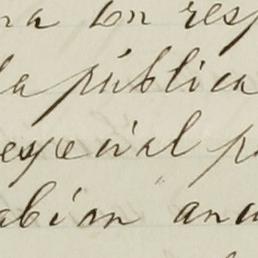 na con resp
la pública
especial p
abian anu